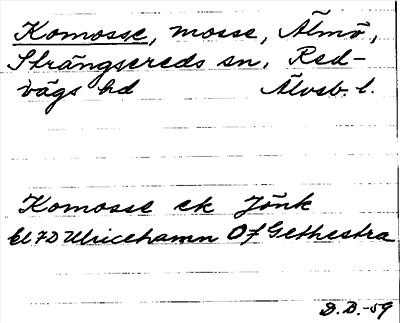 Komosse, mosse, Älmö,
Strängsereds sn. Red-
vägs hd Älvsb. l.
Komosse ek Jönk
bl 7D Ulricehamn Of Gethestra
D.B.-59